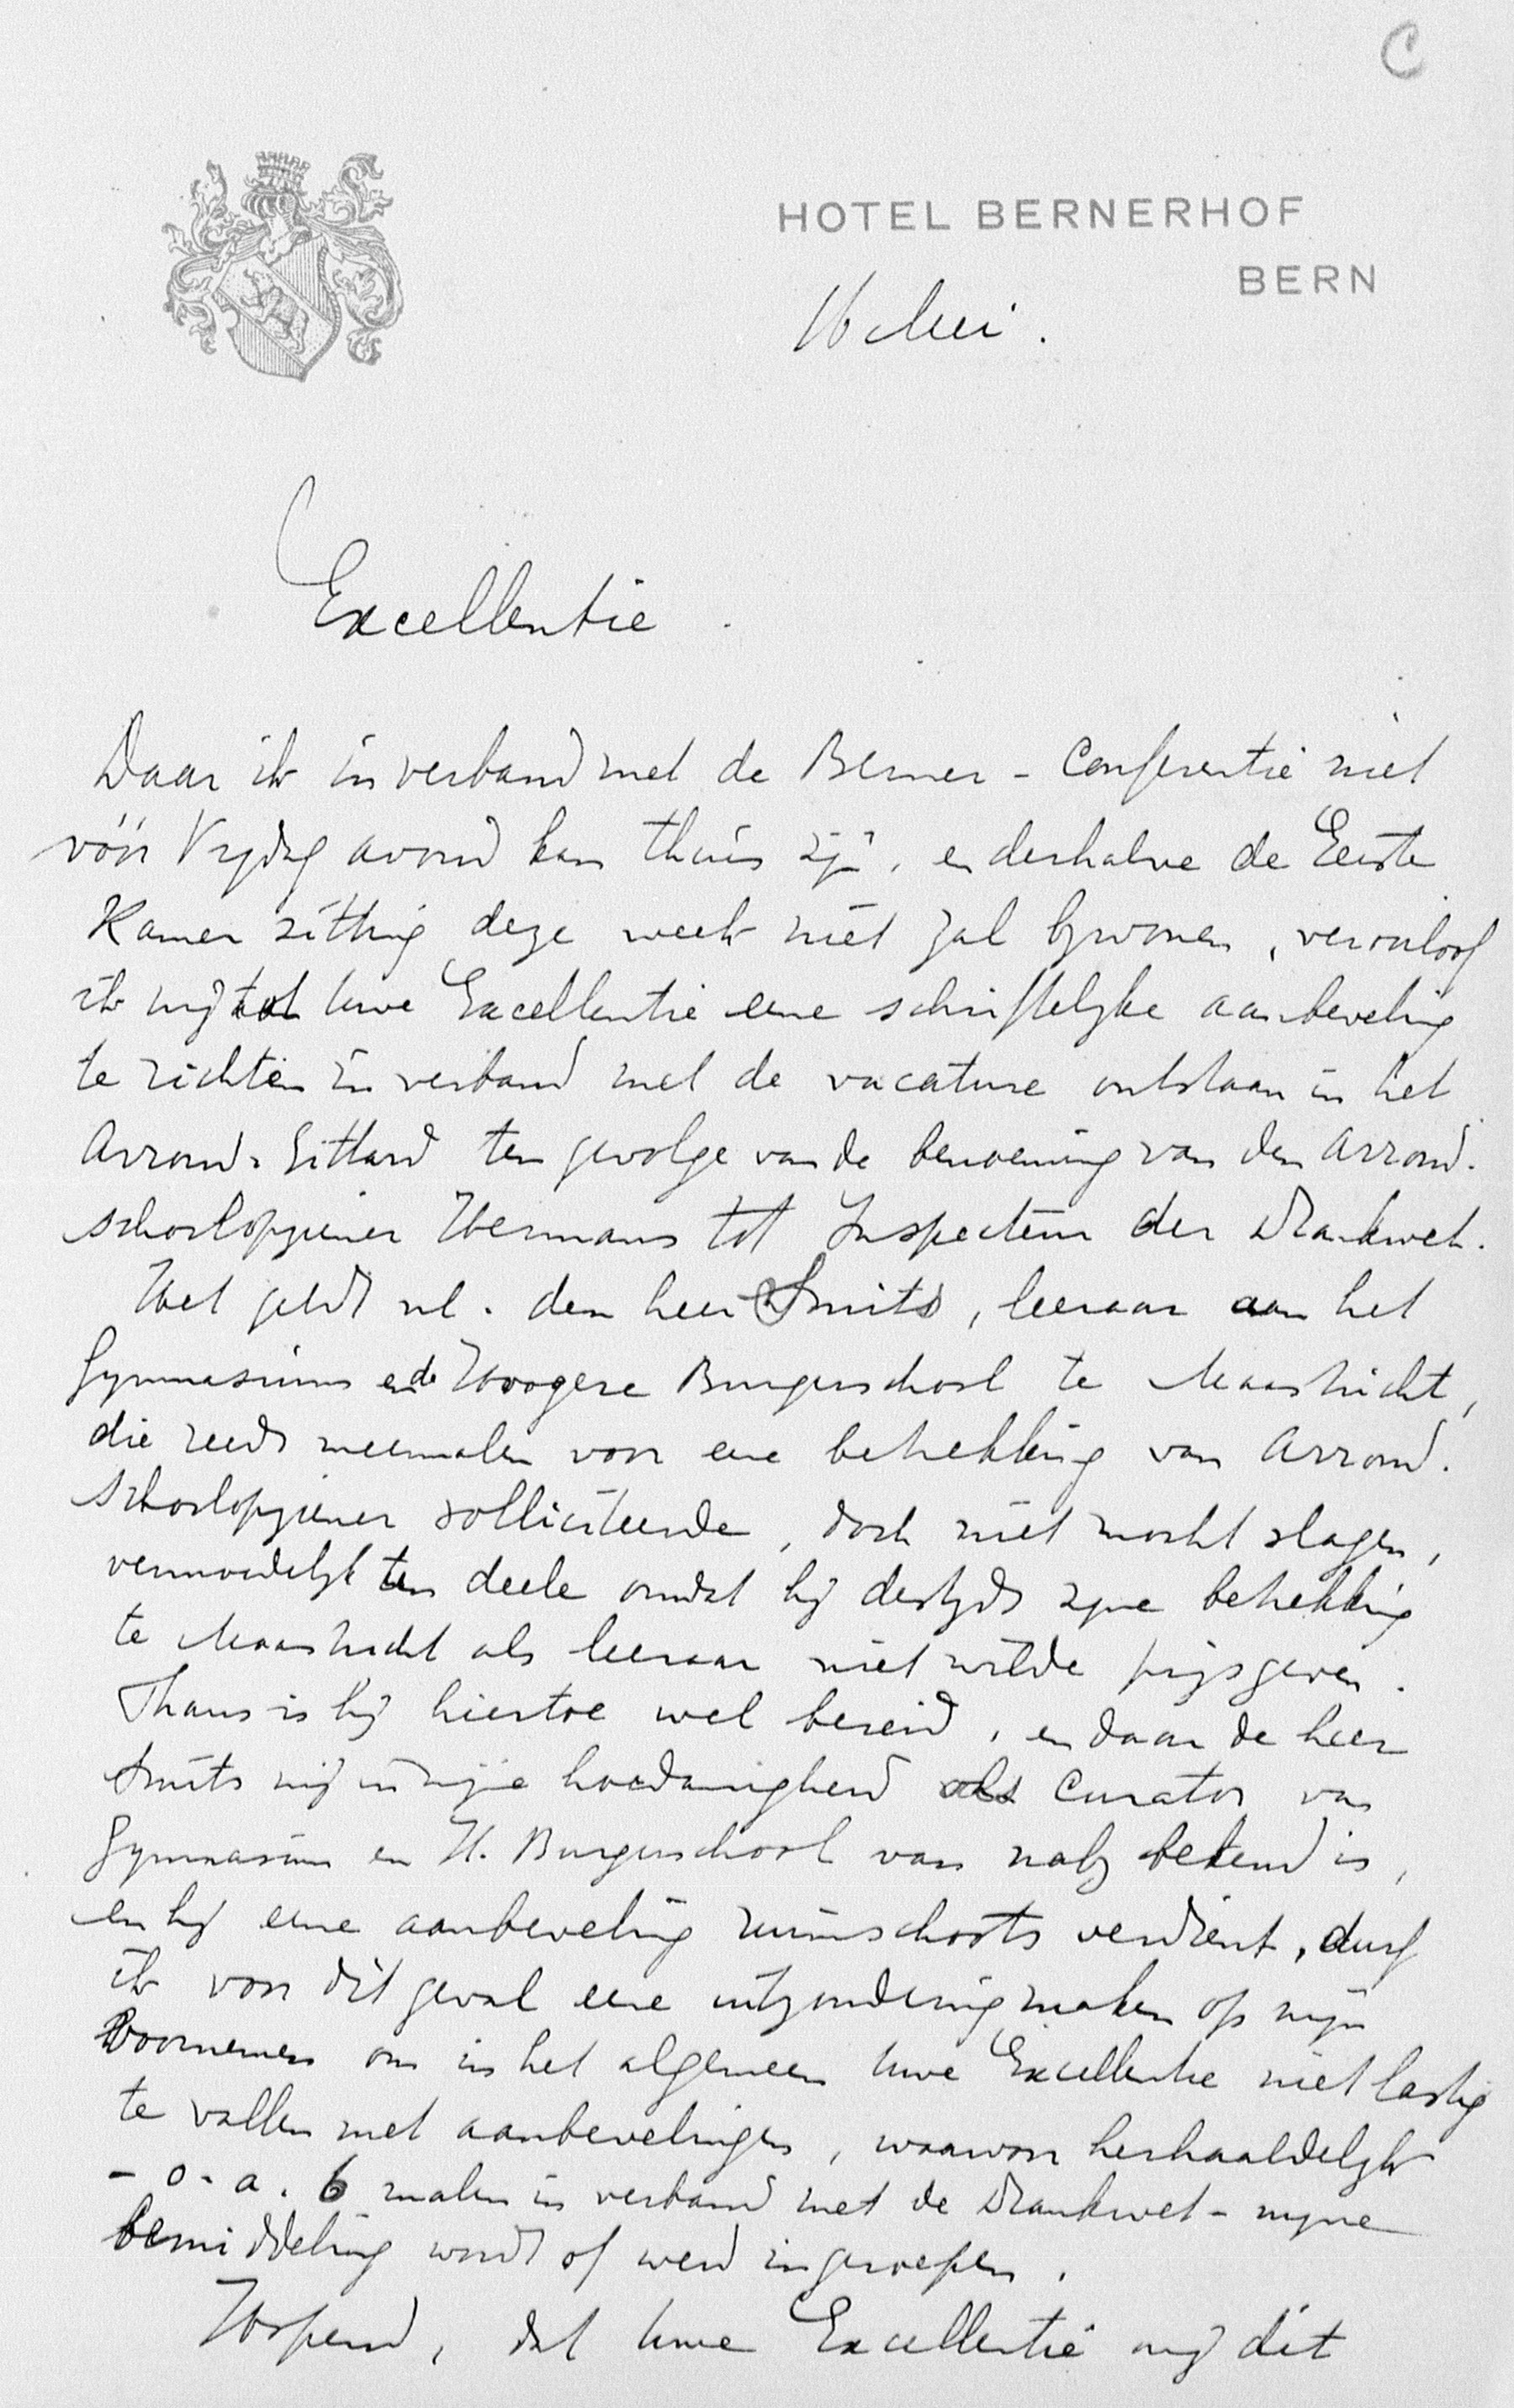 C
HOTEL BERNERHOF
BERN
16 Mei.
Excellentie.
Daar ik in verband met de Berner-Conferentie niet
vóór Vrijdag avond kan thuis zijn, en derhalve de Eerste
Kamer zitting deze week niet zal bijwonen, veroorloof
ik mij tot Uwe Excellentie eene schriftelijke aanbeveling
te richten in verband met de vacature ontstaan in het
Arrond. Sittard ten gevolge van de benoeming van den Arrond.
schoolopziener Hermans tot Inspecteur der Drankwet.
Het geldt nl. den heer Smits, leeraar aan het
Gymnasium en de Hoogere Burgerschool te Maastricht,
die reeds meermalen voor eene betrekking van Arrond.
schoolopziener solliciteerde, doch niet mocht slagen,
vermoedelijk ten deele omdat hij destijds zijne betrekking
te Maastricht als leeraar niet wilde prijsgeven.
Thans is hij hiertoe wel bereid, en daar de heer
Smits mij in mijne hoedanigheid als Curator van
Gymnasium en H. Burgerschool van nabij bekend is,
en hij eene aanbeveling ruimschoots verdient, durf
ik voor dit geval eene uitzondering maken op mijn
Voornemen om in het algemeen Uwe Excellentie niet lastig
te vallen met aanbevelingen, waarvoor herhaaldelijk
- o.a. 6 malen in verband met de Drankwet - mijne
bemiddeling wordt of werd ingeroepen.
Hopend, dat Uwe Excellentie mij dit